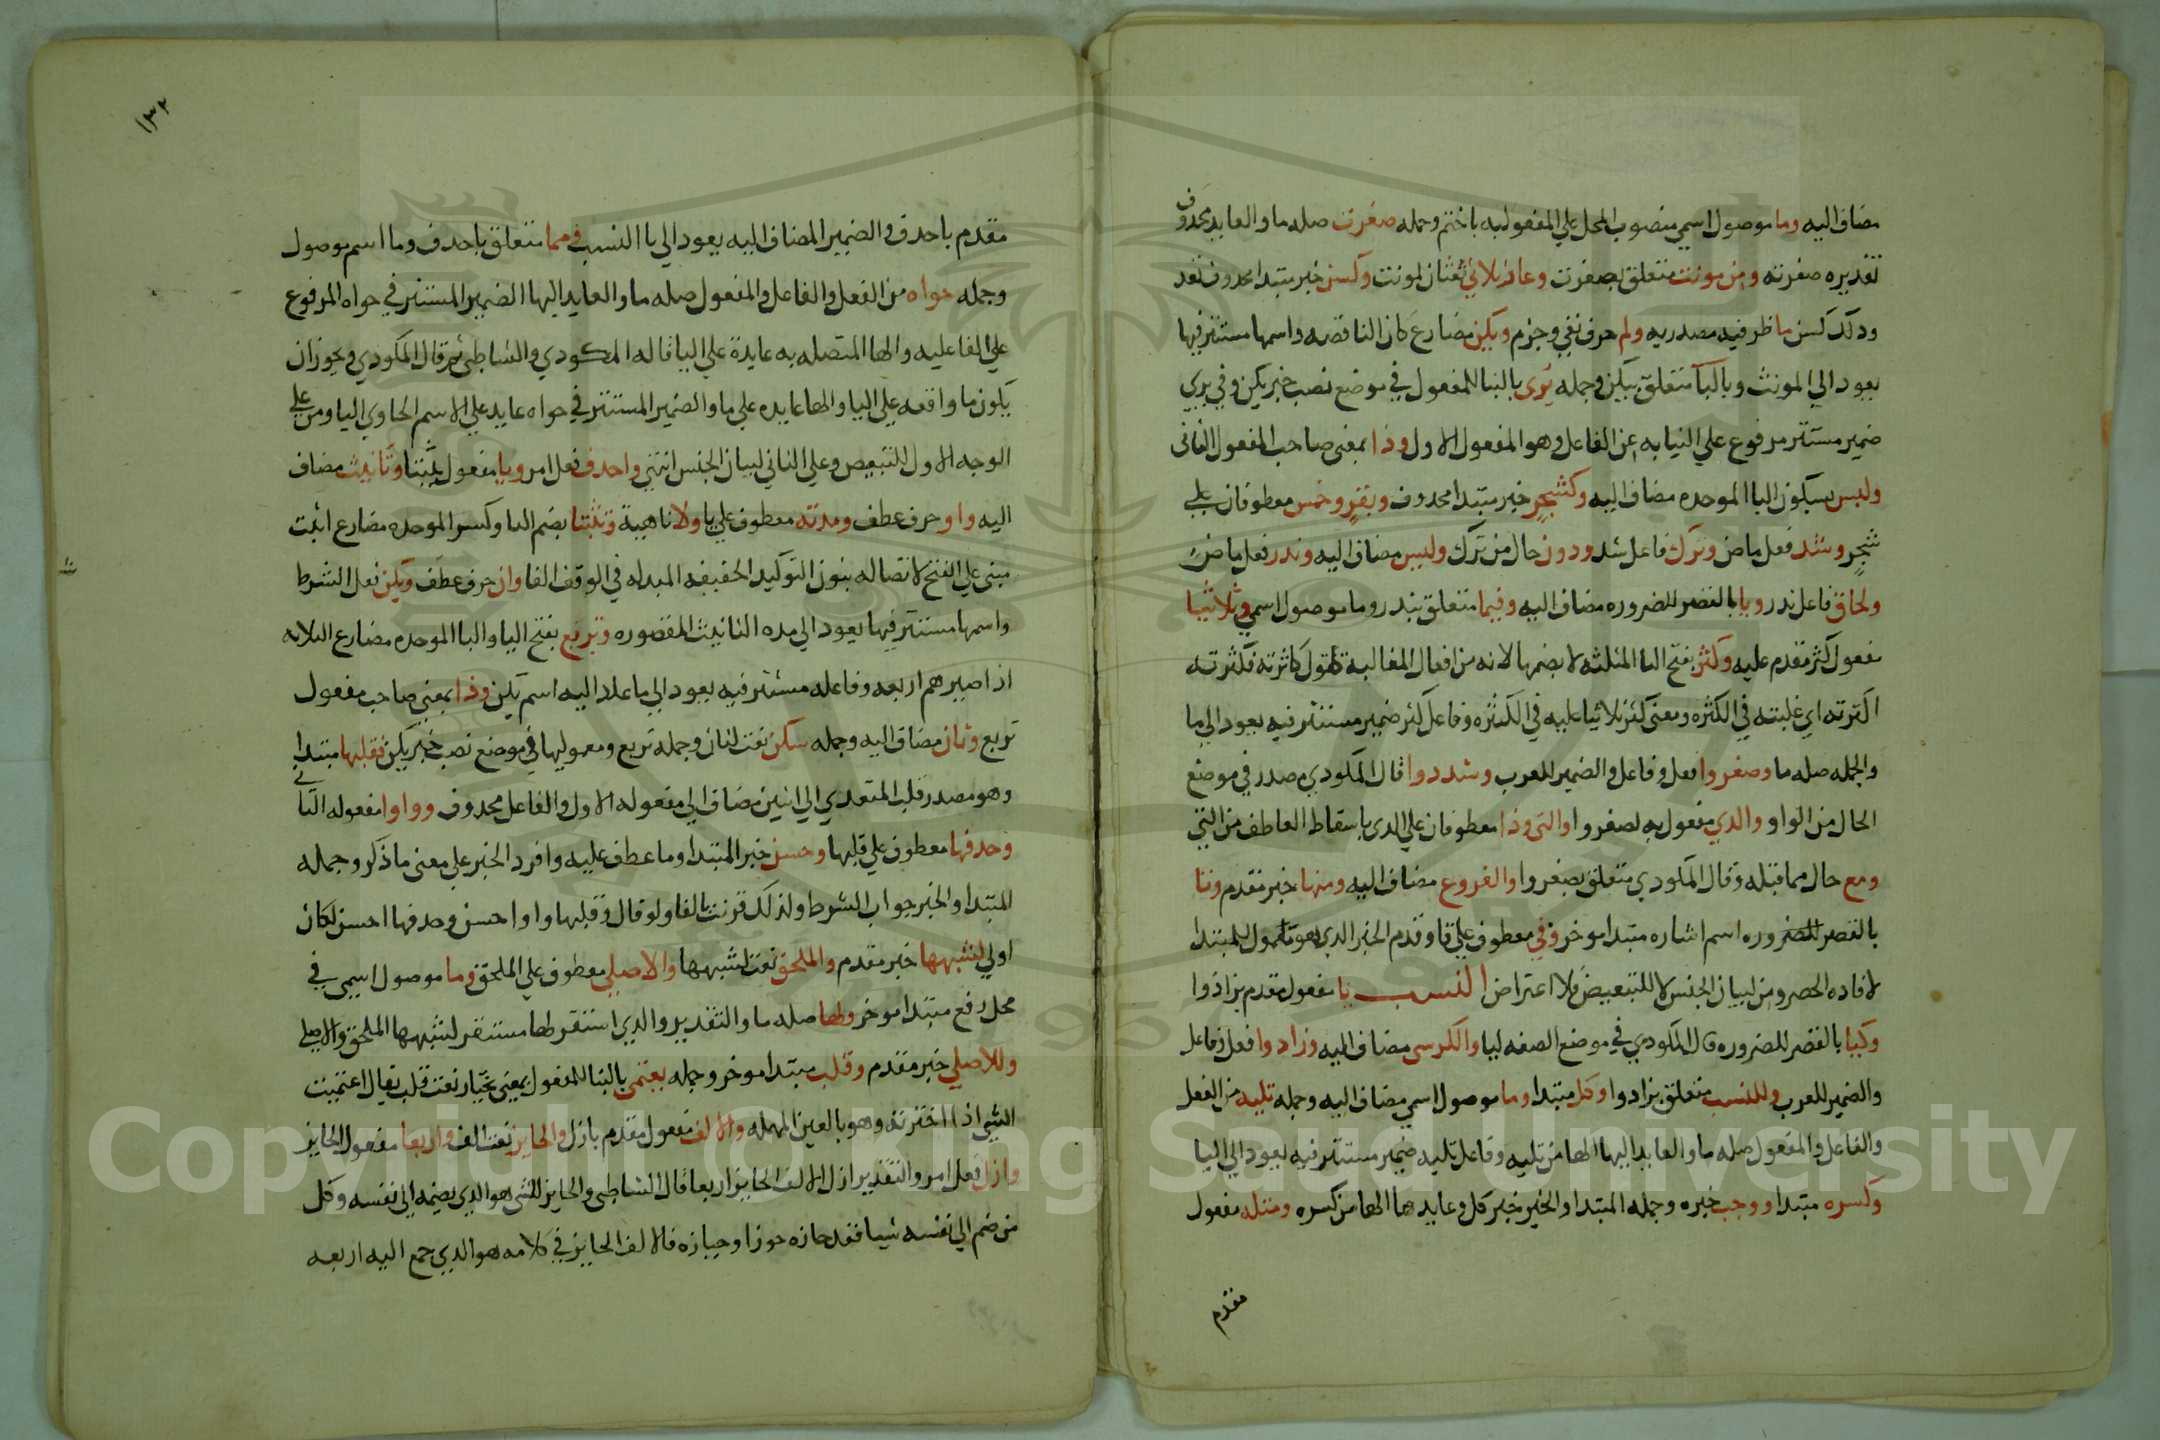 مضاف اليه وما موصول اسمي منصوب المحل علي المفعول به باختم وجمله صغرت صله ما والعايد محذوف
تقديره صغرته ومن مونث متعلق بصغرت وعار ثلاثي نعتان لمونث وكسن خبر مبتدا محذوف تقد
وذلك كسن ما ظرفيه مصدريه ولم حرف نفي وجزم ويكن مضارع كان الناقصه واسمها مستتر فيها
يعود الي المونث وبالتا متعلق بيكن وجمله يرى بالبنا للمفعول في موضع نصب خبر يكن وفي يري
ضمير مستتر مرفوع علي النيابه عن الفاعل وهو المفعول الاول وذا بمعني صاحب المفعول الثاني
ولبس بسكون البا الموحده مضاف اليه وكشجر خبر مبتدا محذوف وبقر وخمس معطوفان علي
شجر وشذ فعل ماض وترك فاعل شذ ودون حال من ترك ولبس مضاف اليه وندر فعل ماض
ولحاق فاعل ندر وتا بالقصر للضروره مضاف اليه وفيما متعلق بندر وما موصول اسمي وثلاثيا
مفعول كثر مقدم عليه وكثر بفتح الثا المثلثه لا بضمها لانه من افعال المغالبة تقول كاثرته فكثرته
اكثرته اي غلبته في الكثره ومعني كثر ثلاثيا عليه في الكثره وفاعل كثر ضمير مستتر فيه يعود الي ما
والجمله صله ما وصغروا فعل وفاعل والضمير للعرب وشذوذا قال المكودي مصدر في موضع
الحال من الواو والذي مفعول به لصغروا والتي وذا معطوفان علي الذي باسقاط العاطف من التي
ومع حال مما قبله وقال المكودي متعلق بصغروا والفروع مضاف اليه ومنها خبر مقدم وتا
بالقصر للضروره اسم اشاره مبتدا موخر وفي معطوف علي تا وقدم الخبر الذي هو معمول للمبتدا
لافاده الحصر ومن لبيان الجنس لا للتبعيض فلا اعتراض النسب يا مفعول مقدم بزادوا
وكيا بالقصر للضروره قال المكودي في موضع الصفه ليا والكرسي مضاف اليه وزادوا فعل وفاعل
والضمير للعرب وللنسب متعلق بزادوا وكل مبتدا وما موصول اسمي مضاف اليه وجمله تليه من الفعل
والفاعل والمفعول صله ما والعايد اليها الها من تليه وفاعل تليه ضمير مستتر فيه يعود الي اليا
وكسره مبتدا ووجب خبره وجمله المبتدا والخبر خبر كل وعايدها الها من كسره ومثله مفعول
مقدم
١٣٢
مقدم باحذف والضمير المضاف اليه يعود الي يا النسب فمما متعلق باحذف وما اسم موصول
وجمله حواه من الفعل والفاعل والمفعول صله ما والعايد اليها الضمير المستتر في حواه المرفوع
علي الفاعليه والها المتصله به عايدة علي اليا قاله المكودي والشاطبي ثم قال المكودي ويجوز ان
يكون ما واقعه علي اليا والها عايده علي ما والضمير المستتر في حواه عايد علي الاسم الحاوي اليا ومن علي
الوجه الاول للتبعيض وعلي الثاني لبيان الجنس انتهي واحذف فعل امر ويا مفعول تثبتا وتانيث مضاف
اليه واو حرف عطف ومدته معطوف علي يا ولا ناهية وتثبتا بضم التا وكسر الموحده مضارع اثبت
مبني علي الفتح لاتصاله بنون التوكيد الخفيفه المبدله في الوقف الفا وان حرف عطف وتكن فعل الشرط
واسمها مستتر فيها يعود الي مده التانيث المقصوره وتربع بفتح اليا والبا الموحده مضارع الثلاثه
اذا صيرهم اربعه وفاعله مستتر فيه يعود الي ما عاد اليه اسم تكن وذا بمعني صاحب مفعول
تربع وثان مضاف اليه وجمله سكن نعت لثان وجمله تربع ومعموليها في موضع نصب خبر يكن فقلبها مبتدا
وهو مصدر قلب المتعدي الي اثنين مضاف الي مفعوله الاول والفاعل محذوف وواوا مفعوله الثاني
وحذفها معطوف علي قلبها وحسن خبر المبتدا وما عطف عليه وافرد الخبر علي معني ما ذكر وجمله
المبتدا والخبر جواب الشرط ولذلك قرنت بالفا ولو قال وقلبها واوا حسن وحذفها احسن لكان
اولي لشبهها خبر مقدم والملحق نعت لشبهها والاصلي معطوف علي الملحق وما موصول اسمي في
محل رفع مبتدا موخر ولها صله ما والتقدير والذي استقر لها مستقر لشبهها الملحق والاصلي
وللاصلي خبر مقدم وقلب مبتدا موخر وجمله يعتمى بالبنا للمفعول بمعني يختار نعت قلب يقال اعتميت
الشي اذا اخترته وهو بالعين المهمله والالف مفعول مقدم بازل والجايز نعت الف واربعا مفعول الجايز
وازل فعل امر والتقدير ازل الالف الجايز اربعا قال الشاطبي والحايز للشي هو الذي يضمه الي نفسه وكل
من ضم الي نفسه شيا فقد حازه حوزا وحيازه فالالف الحايز في كلامه هو الذي جمع اليه اربعه
Copyright © King Saud University